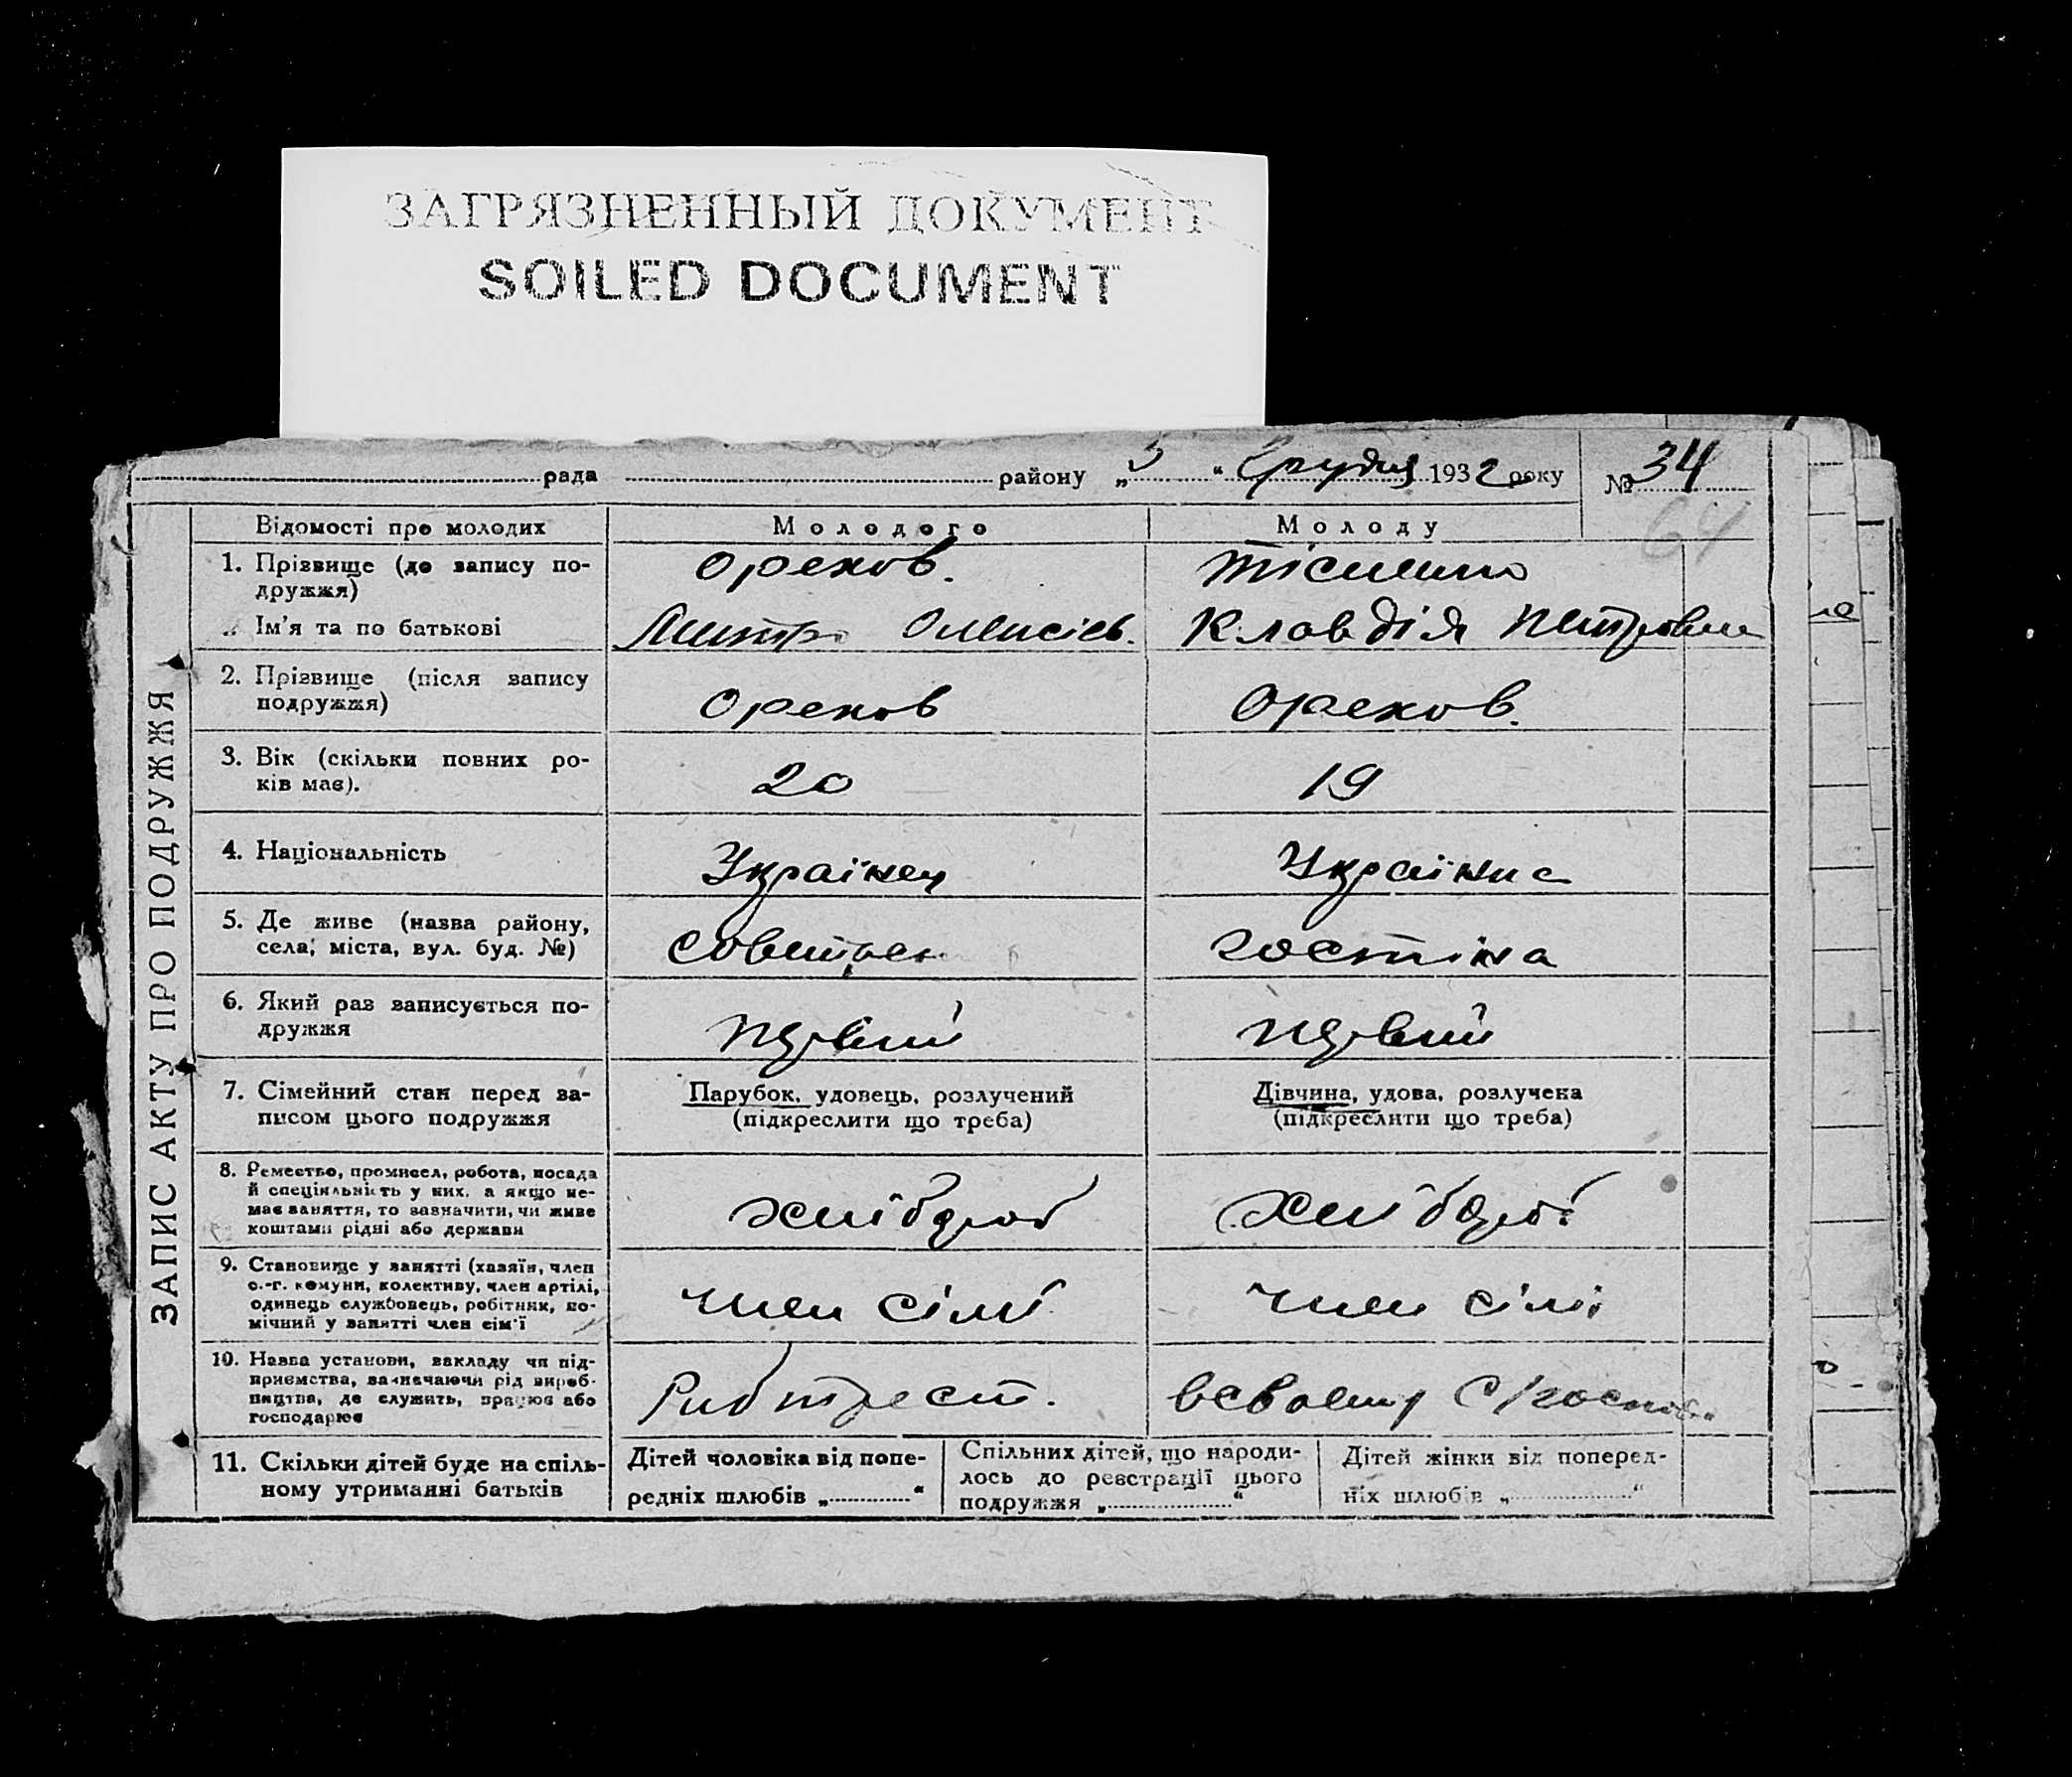 ЗАГРЯЗНЕННЫЙ ДОКУМЕНТ
SOILED DOCUMENT
рада району „3“ Грудня 1932 року № 34
64
ЗАПИС АКТУ ПРО ПОДРУЖЖЯ
Відомості про молодих Молодого Молоду
1. Прізвище (до запису по-
дружжя) Орехов.
Ім'я та по батькові Клавдія Петровна
2. Прізвище (після запису
подружжя) Орехов Орехов.
3. Вік (скільки повних ро-
ків має). 20 19
4. Національність Українец Українка
5. Де живе (назва району,
села, міста, вул. буд. №) гостіна
6. Який раз записується по-
дружжя первий первий
7. Сімейний стан перед за-
писом цього подружжя
Парубок, удовець, розлучений
(підкреслити що треба)
Дівчина, удова, розлучена
(підкреслити що треба)
8. Ремество, промисел, робота, посада
й спеціяльність у них, а якщо не-
має заняття, то зазначити, чи живе
коштами рідні або держави хлібороб хлібороб
9. Становище у занятті (хазяїн, член
с.-г. комуни, колективу, член артілі,
одинець службовець, робітник, по-
мічний у занятті член сім'ї член сімї член сімї
10. Назва установи, закладу чи під-
приємства, зазначаючи рід вироб-
ництва, де служить, працює або
господарює Рибтрест. в своему
11. Скільки дітей буде на спіль-
ному утриманні батьків
Дітей чоловіка від попе-
редніх шлюбів „ “
Спільних дітей, що народи-
лось до реєстрації цього
подружжя „ “
Дітей жінки від поперед-
ніх шлюбів „ “